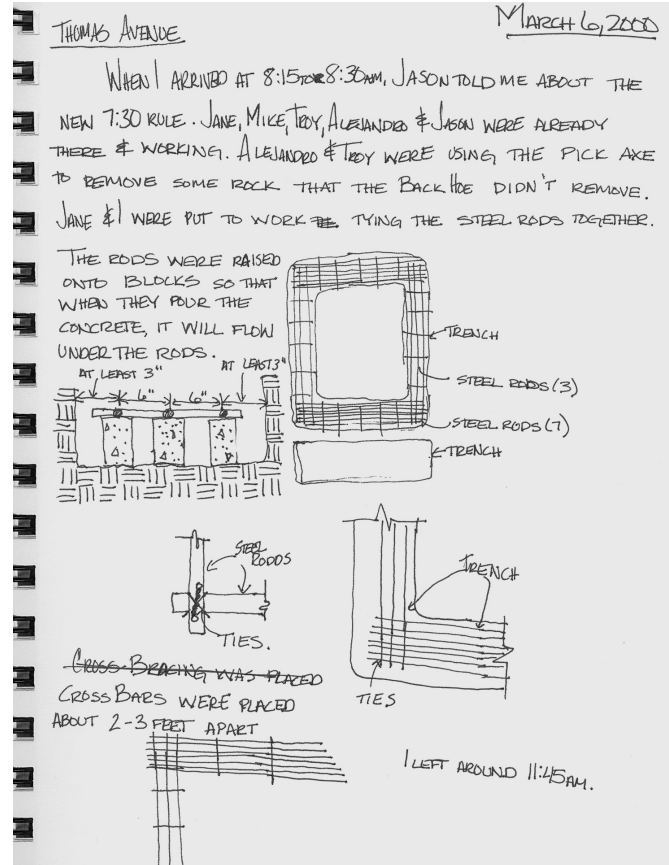 THOMAS AVENUE
MARCH 6, 2000
WHEN I ARRIVED AT 8:15 TO 8:30AM, JASON TOLD ME ABOUT THE
NEW 7:30 RULE. JANE, MIKE, TROY, ALEJANDRO & JASON WERE ALREADY
THERE & WORKING. ALEJANDRO & TROY WERE USING THE PICK AXE
TO REMOVE SOME ROCK THAT THE BACK HOE DIDN'T REMOVE.
JANE & I WERE PUT TO WORK TYING THE STEEL RODS TOGETHER.
THE RODS WERE RAISED
ONTO BLOCKS SO THAT
WHEN THEY POUR THE
CONCRETE, IT WILL FLOW
UNDER THE RODS.
AT LEAST 3" 6" 6" AT LEAST 3"
TRENCH
STEEL RODS (3)
STEEL RODS (7)
TRENCH
STEEL
RODDS
TIES.
TRENCH
TIES
CROSS-BRACING WAS PLACED
CROSS BARS WERE PLACED
ABOUT 2-3 FEET APART
I LEFT AROUND 11:45AM.